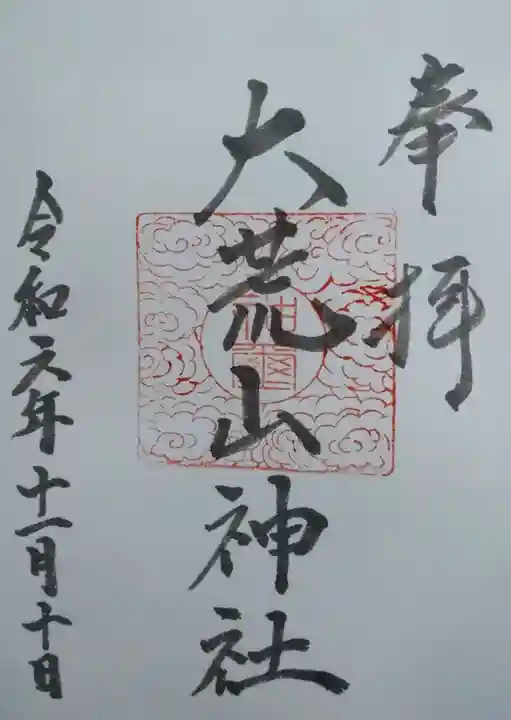 奉拝
大荒山神社
令和元年十一月十日